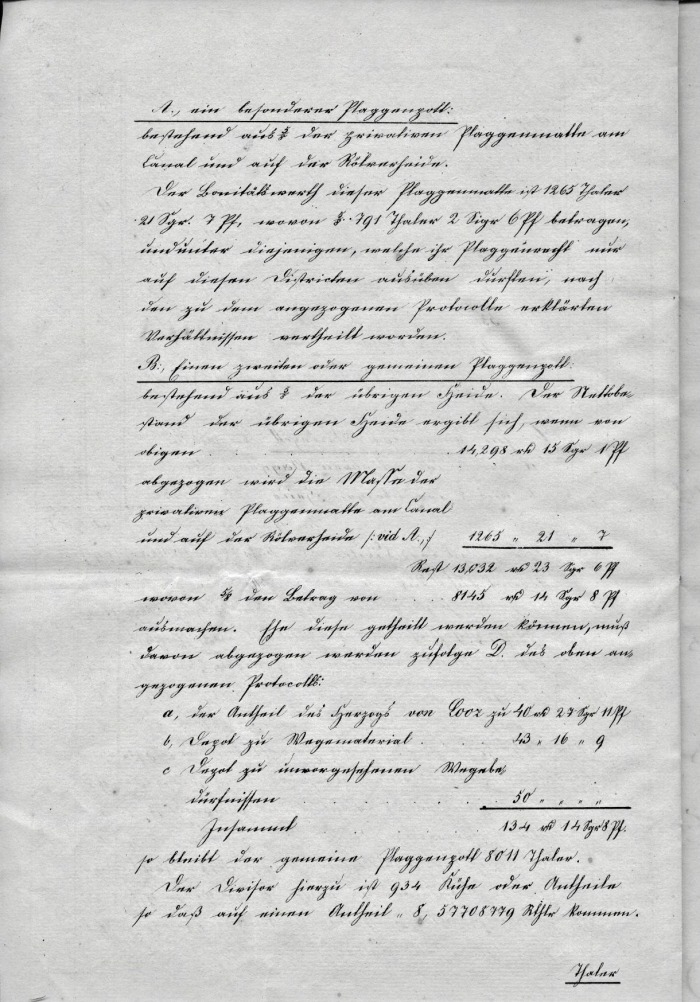 A., ein besonderer Plaggenpott:
bestehend aus 5/8 der privativen Plaggenmatte am
Canal und auf der Rölverheide.
Der Bonitätswerth dieser Plaggenmatte ist 1265 Thaler
21 Sgr. 7 Pf, wovon 5/8 791 Thaler 2 Sgr 6 Pf betragen,
und unter diejenigen, welche ihr Plaggenrecht nur
auf diesen Districten ausüben durften, nach
den zu dem angezogenen Protocolle erklärten
Verhältnissen vertheilt worden.
B., Einen zweiten oder gemeinen Plaggenpott:
bestehend aus 5/8 der übrigen Heide. Der Nettobe-
stand der übrigen Heide ergibt sich, wenn von
obigen . . . 14,298 rtl 15 Sgr 1 Pf
abgezogen wird die Masse der
privativen Plaggenmatte am Canal
und auf der Rölverheide /: vid A., :/ 1265 " 21 " 7
Rest 13,032 rtl 23 Sgr 6 Pf
wovon 5/8 den Betrag von . . . 8145 rtl 14 Sgr 8 Pf
ausmachen. Ehe diese getheilt werden können, muß
davon abgezogen werden zufolge D. des oben an-
gezogenen Protocolls:
a, der Antheil des Herzogs von Looz zu 40 rtl 27 Sgr 11 Pf
b, Depot zu Wegematerial . . . 43 " 16 " 9
c Depot zu unvorgesehenen Wegebe-
dürfnissen . . . 50 " " " "
Insammt . . . 134 rtl 14 Sgr 8 Pf.
so bleibt der gemeine Plaggenpott 8011 Thaler.
Der Divisor hierzu ist 934 Kühe oder Antheile
so daß auf einen Antheil " 8, 57708779 Rthlr kommen.
Thaler